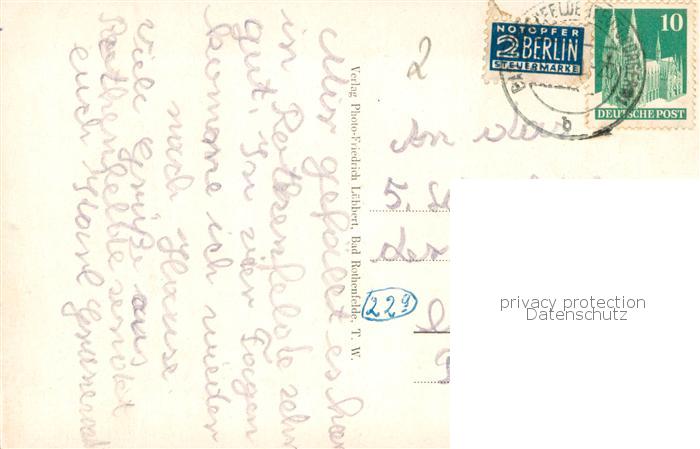 Mir gefällt es hier
in Rothenfelde sehr
gut. In vier Tagen
komme ich wieder
nach Hause
Viele Grüße aus
Rothenfelde sendet
euch
Verlag Photo-Friedrich Lübbert, Bad Rothenfelde, T. W.
2
NOTOPFER
2 BERLIN
STEUERMARKE
10
DEUTSCHE POST
b
An die
5.
der
229
privacy protection
Datenschutz